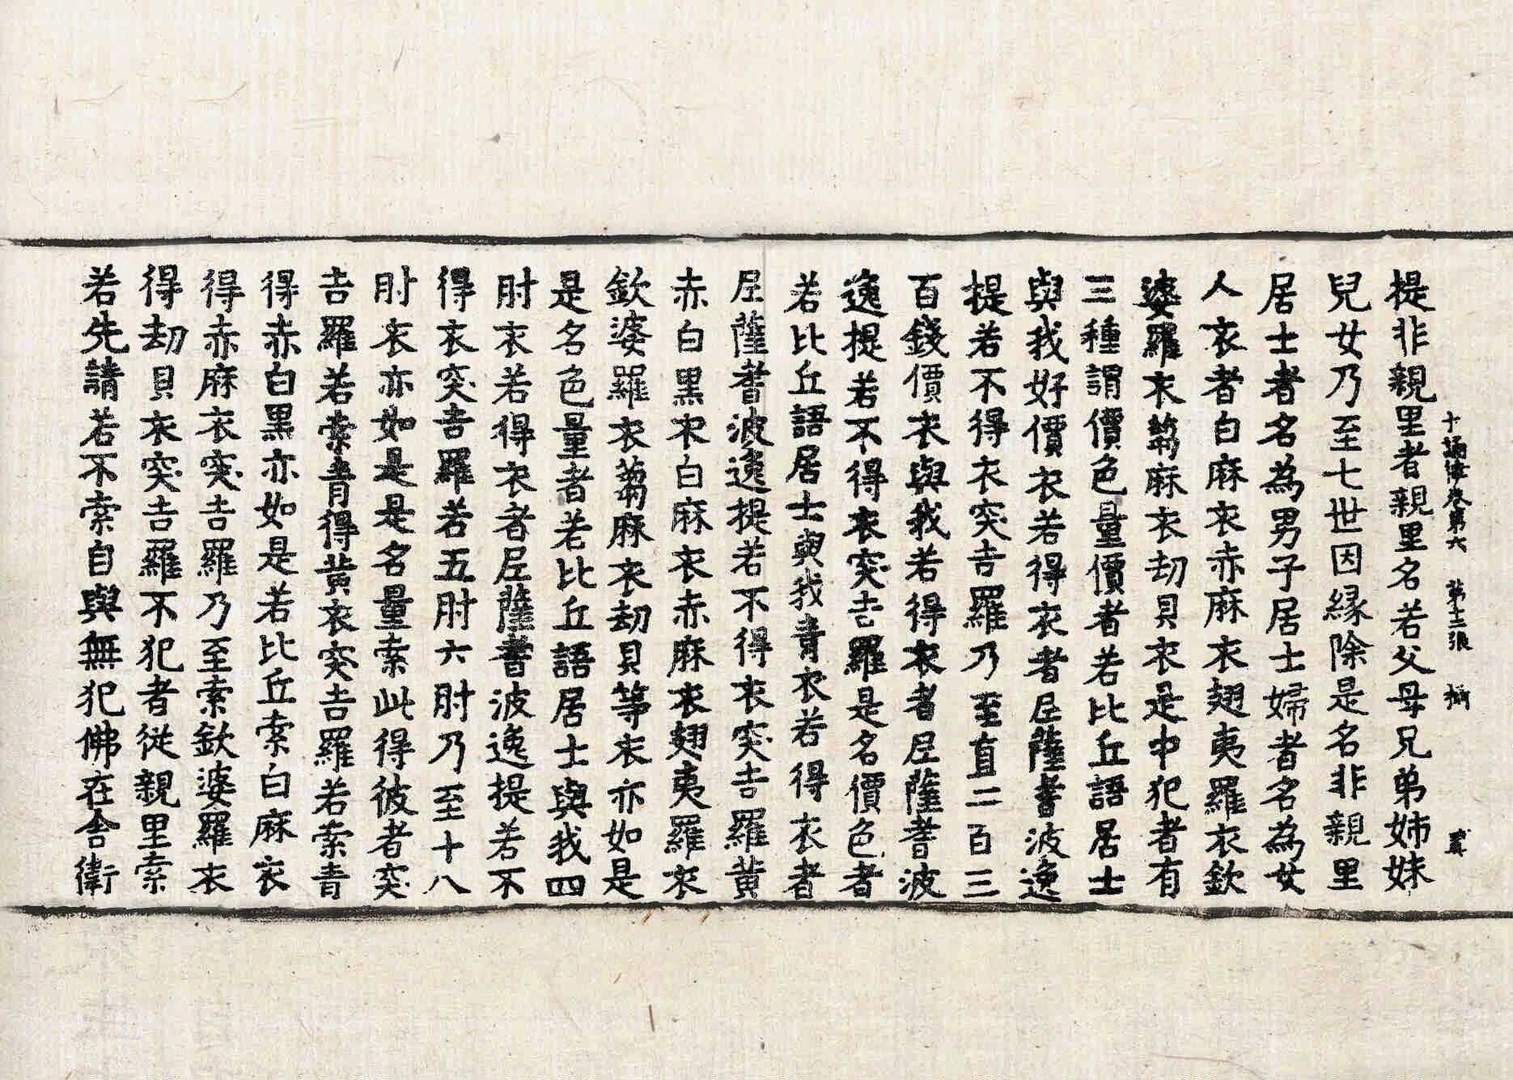 十誦律卷第六 第十二張
提非親里者親里名若父母兄弟姉妹
兒女乃至七世因緣除是名非親里
居士者名為男子居士婦者名為女
人衣者白麻衣赤麻衣翅夷羅衣欽
婆羅衣蒭麻衣劫貝衣是中犯者有
三種謂價色量價者若比丘語居士
與我好價衣若得衣者尼薩耆波逸
提若不得衣突吉羅乃至直二百三
百錢價衣與我若得衣者尼薩耆波
逸提若不得衣突吉羅是名價色者
若比丘語居士與我青衣若得衣者
尼薩耆波逸提若不得衣突吉羅黃
赤白黑衣白麻衣赤麻衣翅夷羅衣
欽婆羅衣蒭麻衣劫貝等衣亦如是
是名色量者若比丘語居士與我四
肘衣若得衣者尼薩耆波逸提若不
得衣突吉羅若五肘六肘乃至十八
肘衣亦如是是名量索此得彼者突
吉羅若索青得黃衣突吉羅若索青
得赤白黑亦如是若比丘索白麻衣
得赤麻衣突吉羅乃至索欽婆羅衣
得劫貝衣突吉羅不犯者從親里索
若先請若不索自與無犯佛在舍衛